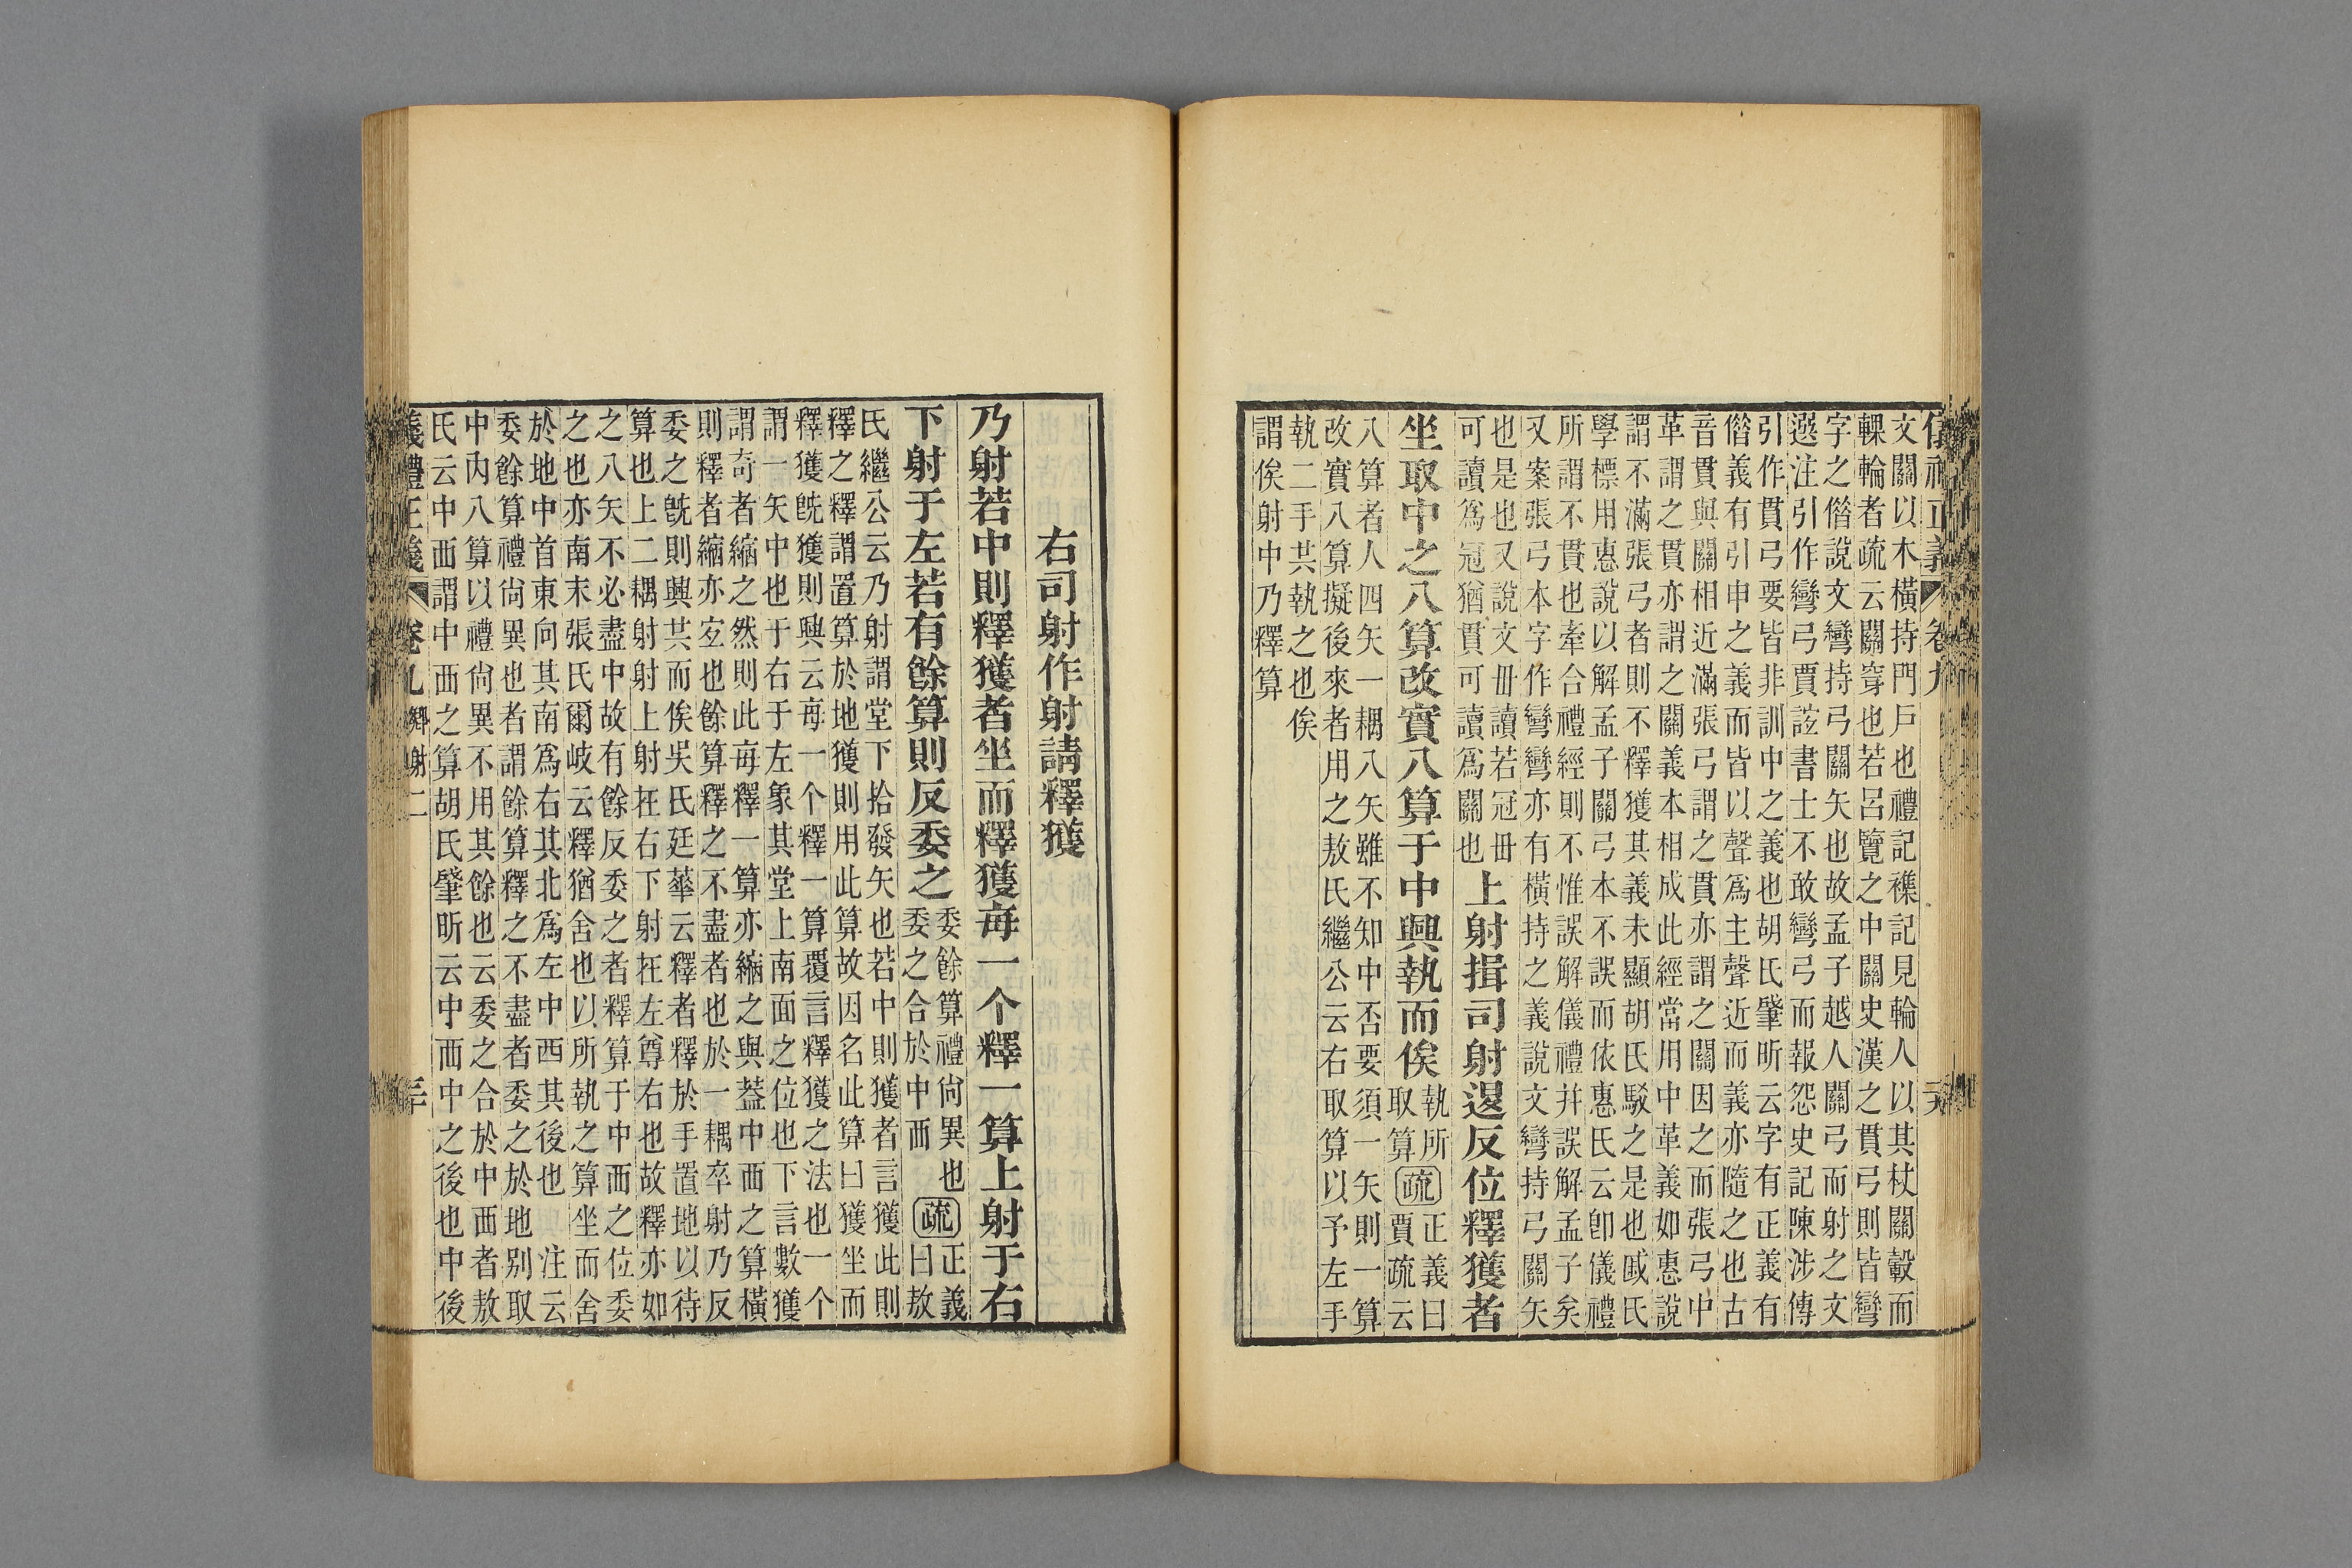 文關以木橫持門戶也禮記襍記見輪人以其杖關轂而
輠輪者疏云關穿也若呂覽之中關史漢之貫弓則皆彎
字之偕說文彎持弓關矢也故孟子越人關弓而射之文
選注引作彎弓賈誼書士不敢彎弓而報怨史記陳涉傳
引作貫弓要皆非訓中之義也胡氏肇昕云字有正義有
偕義有引申之義而皆以聲爲主聲近而義亦隨之也古
音貫與關相近滿張弓謂之貫亦謂之關因之而張弓中
革謂之貫亦謂之關義本相成此經當用中革義如惠說
謂不滿張弓者則不釋獲其義未顯胡氏駁之是也戚氏
學標用惠說以解孟子關弓本不誤而依惠氏云卽儀禮
所謂不貫也牽合禮經則不惟誤解儀禮并誤解孟子矣
又案張弓本字作彎彎亦有橫持之義說文彎持弓關矢
也是也又說文毌讀若冠毌
可讀爲冠猶貫可讀爲關也
上射揖司射退反位釋獲者
坐取中之八算改實八算于中興執而俟
執所
取算
疏
正義曰
賈疏云
八算者人四矢一耦八矢雖不知中否要須一矢則一算
改實八算擬後來者用之敖氏繼公云右取算以予左手
執二手共執之也俟
謂俟射中乃釋算
右司射作射請釋獲
乃射若中則釋獲者坐而釋獲每一个釋一算上射于右
下射于左若有餘算則反委之
委餘算禮尙異也
委之合於中西
疏
正義
曰敖
氏繼公云乃射謂堂下拾發矢也若中則獲者言獲此則
釋之釋謂置算於地獲則用此算故因名此算曰獲坐而
釋獲旣獲則興云每一个釋一算覆言釋獲之法也一个
謂一矢中也于右于左象其堂上南面之位也下言數獲
謂奇者縮之然則此每釋一算亦縮之與葢中西之算橫
則釋者縮亦宐也餘算釋之不盡者也於一耦卒射乃反
委之旣則興共而俟吳氏廷華云釋者釋於手置地以待
算也上二耦射射上射在右下射在左尊右也故釋亦如
之八矢不必盡中故有餘反委之者釋算于中西之位委
之也亦南末張氏爾岐云釋猶舍也以所執之算坐而舍
於地中首東向其南爲右其北爲左中西其後也　注云
委餘算禮尙異也者謂餘算釋之不盡者委之於地别取
中內八算以禮尙異不用其餘也云委之合於中西者敖
氏云中西謂中西之算胡氏肇昕云中西中之後也中後
儀禮正義　卷九　鄉射二